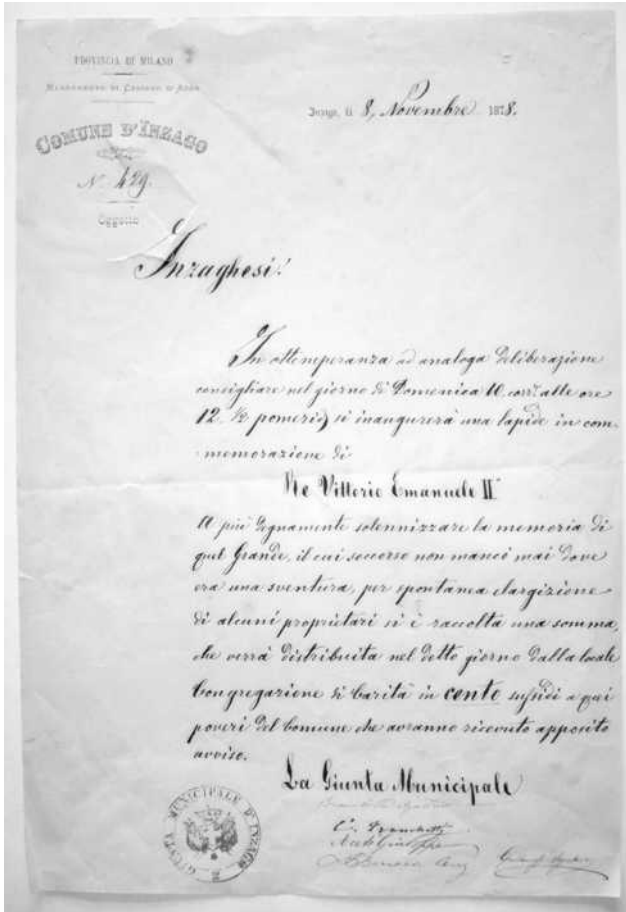 PROVINCIA DI MILANO
MANDAMENTO DI CASSANO D'ADDA
COMUNE D'INZAGO
N. 429.
Oggetto
Inzago, li 8, Novembre 1878.
Inzaghesi!
In ottemperanza ad analoga deliberazione
consigliare nel giorno di Domenica 10 corr.te alle ore
12 ½ pomerid) si inaugurerà una lapide in com-
memorazione di
Re Vittorio Emanuele II°
A più degnamente solennizzare la memoria di
quel Grande, il cui soccorso non mancò mai dove
era una sventura, per spontanea elargizione
di alcuni proprietari si è raccolta una somma,
che verrà distribuita nel detto giorno dalla locale
Congregazione di Carità in cento sussidi a quei
poveri del Comune che avranno ricevuto apposito
avviso.
La Giunta Municipale
GIUNTA MUNICIPALE D'INZAGO